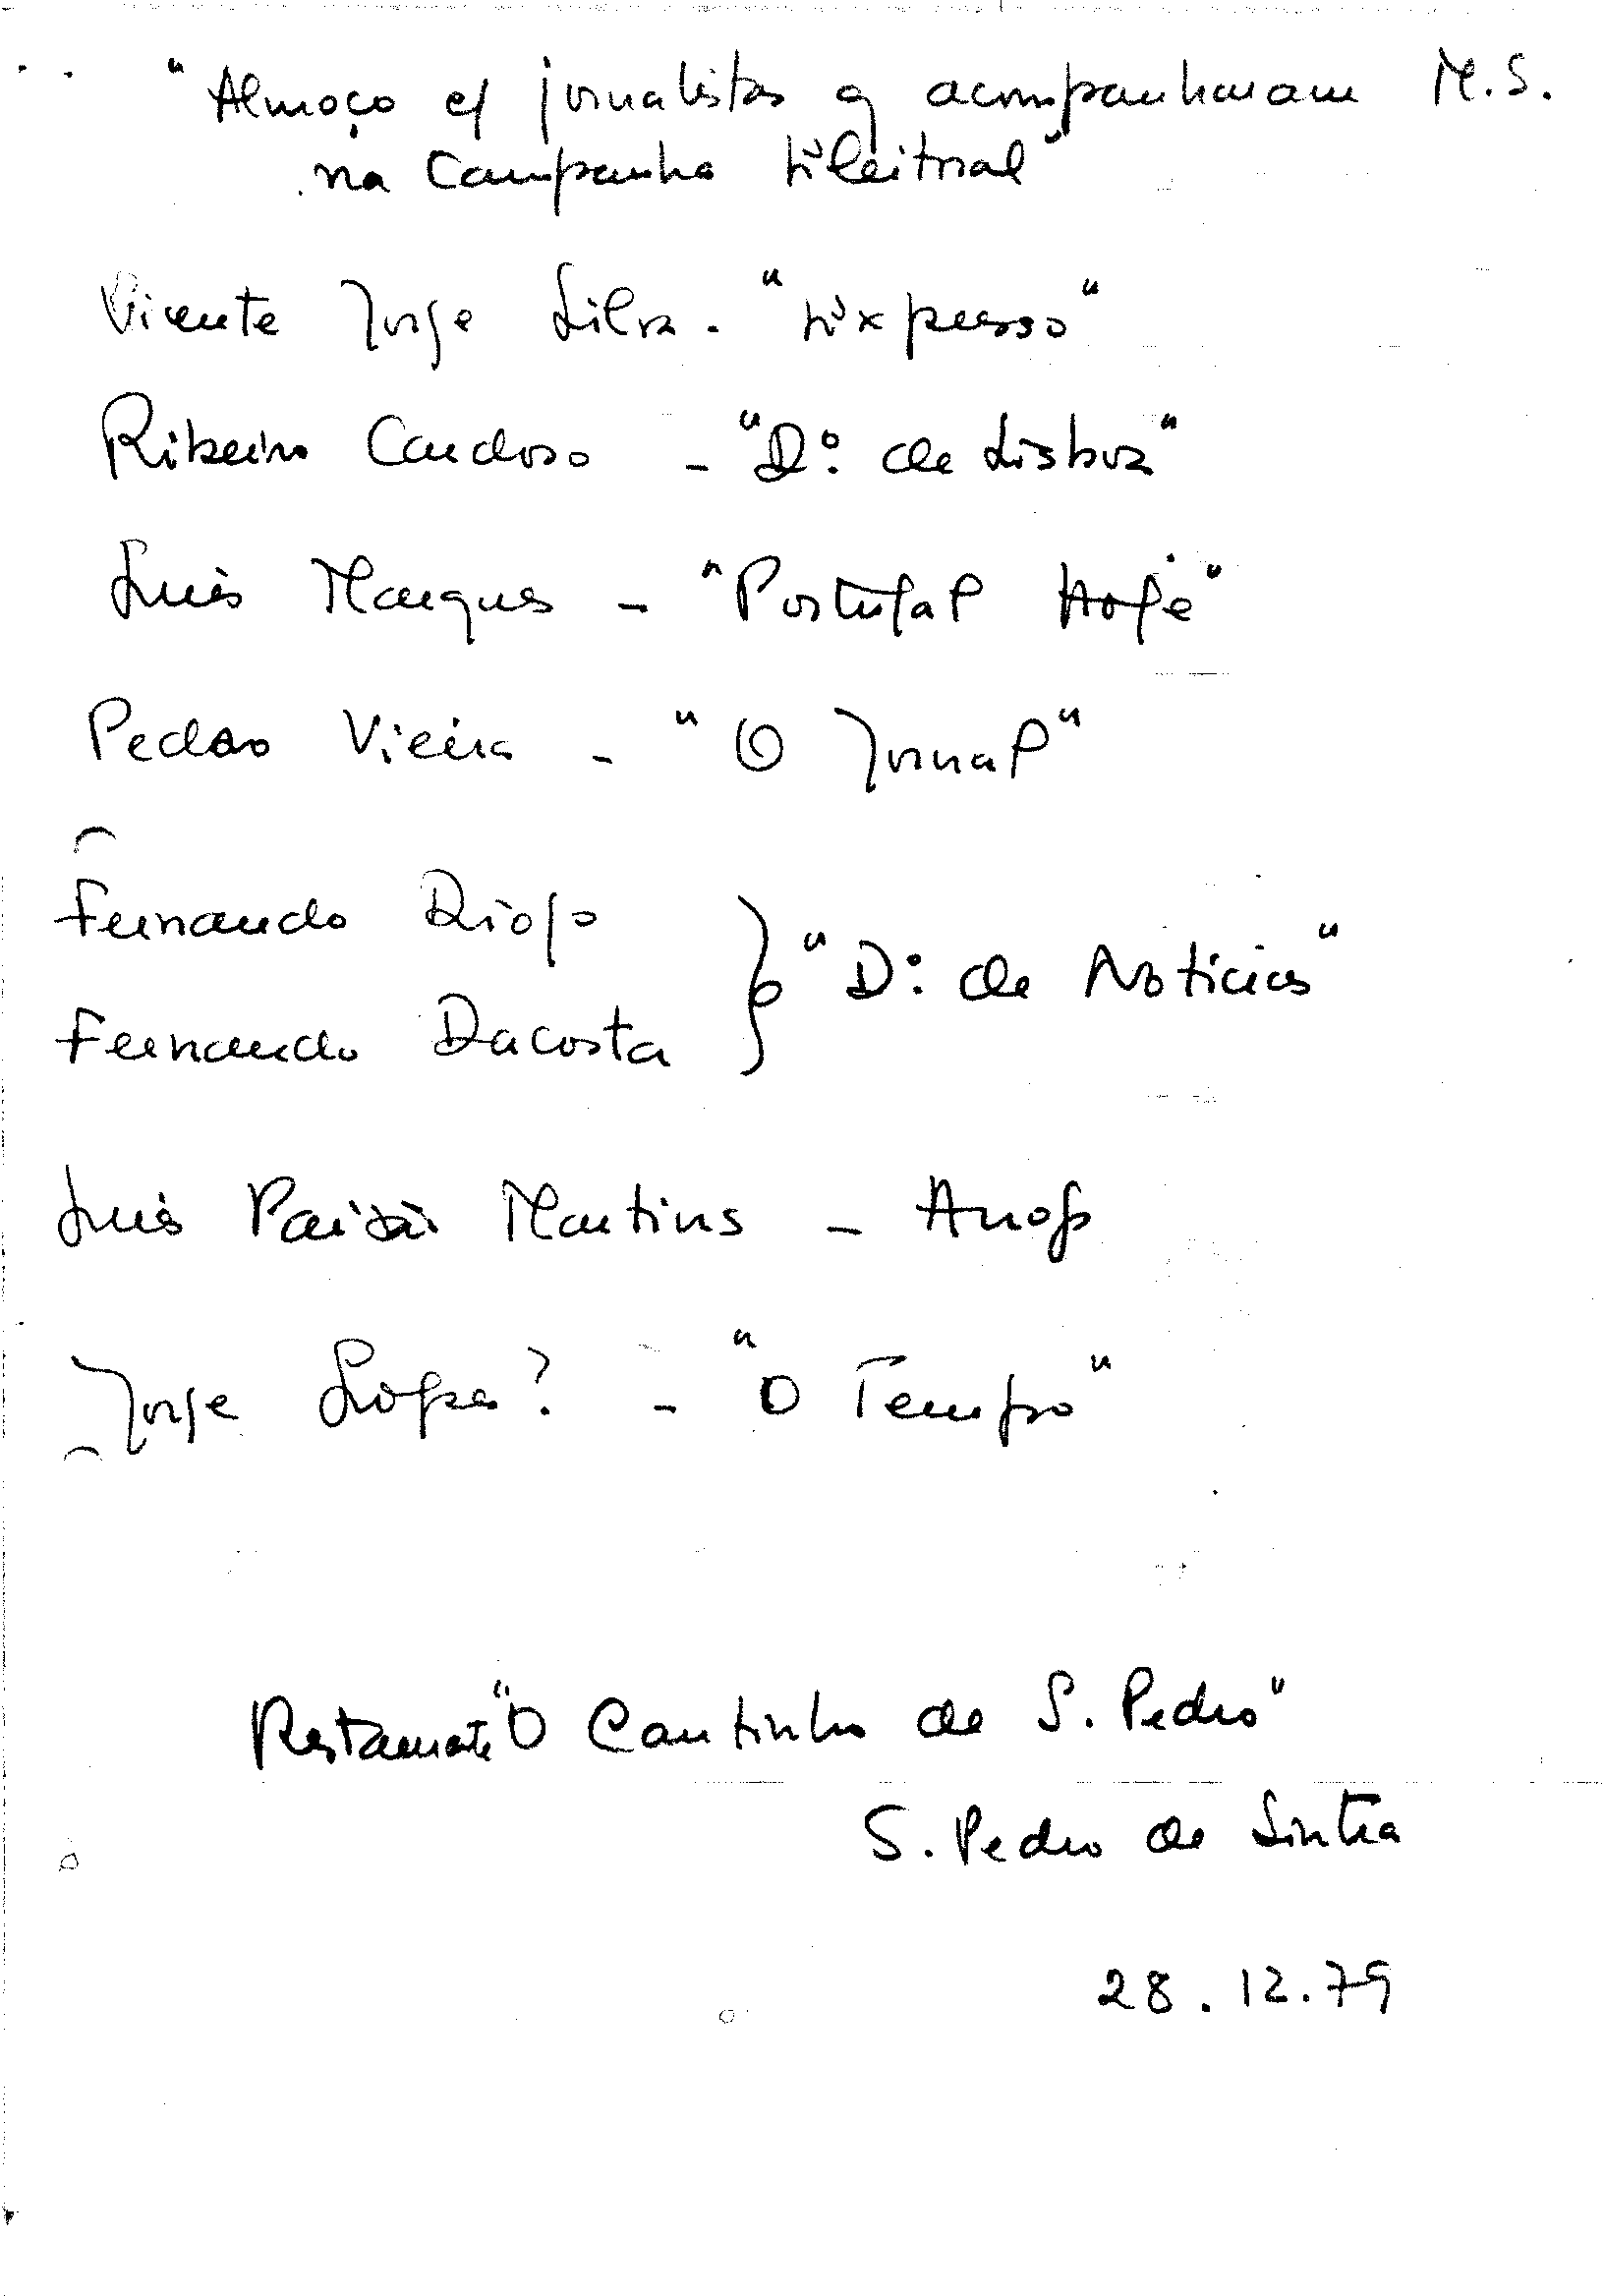 "Almoço c/ jornalistas q acompanharam M.S.
na Campanha Eleitoral"
Vicente Jorge Silva - "Expresso"
Ribeiro Cardoso - "Dº. de Lisboa"
Luís Marques - "Portugal Hoje"
Pedro Vieira - "O Jornal"
Fernando Diogo
Fernando Dacosta } "Dº. de Notícias"
Luís Paixão Martins - Anop
Jorge Lopes? - "O Tempo"
Restaurante "O Cantinho de S. Pedro"
S. Pedro de Sintra
28.12.79